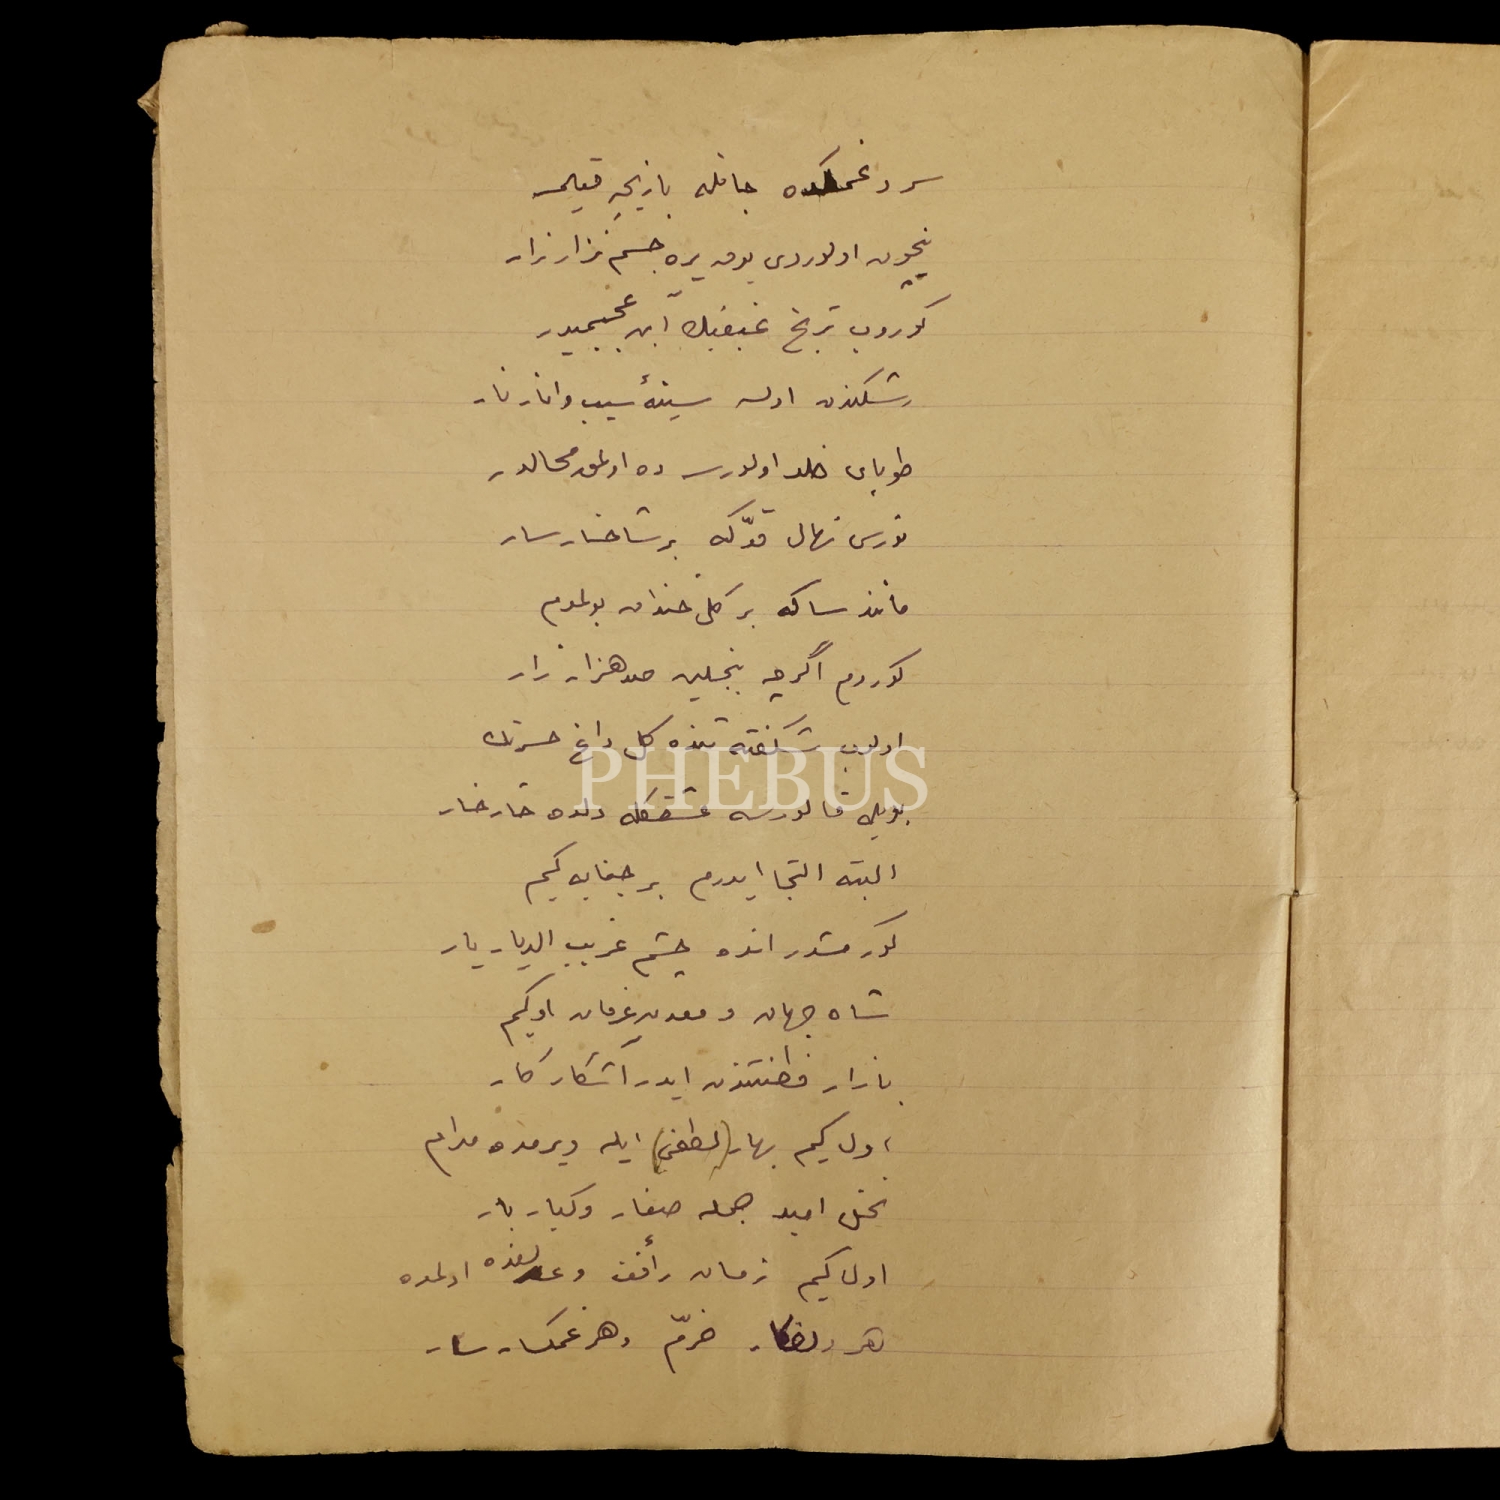 سر د غمكده جانله بازيچه
نيچون اولوردى بويره جسم نزار زار
كوروب ترنج غبغبك آبى عجيبميدر
رشكندن اولسه سينهٔ سيب و انار نار
طوباى خلد اولورسه ده اولمق محالدر
نورس نهال قدّكه بر شاخسار سار
مانند ساكه بر كل خندان بولمدم
كوردم اگرچه بنجلين صد هزار زار
اولوب شكفته تنده كل داغ حسرتك
بويله قالورسه عشقكله دلده خار خار
البته التجا ايدرم بر جنابه كيم
كورمشدر انده چشم غريب الديار يار
شاه جهان و معدن عرفان او كيم
بازار فطنتندن ايدر آشكار كار
اول كيم بهار (لطفى) ايله ويرمده مدام
نخل اميد جمله صغار و كبار بار
اول كيم زمان رأفت و عدلنده اولمده
هر دلفكار خرّم و هر غمكسار سار
PHEBUS